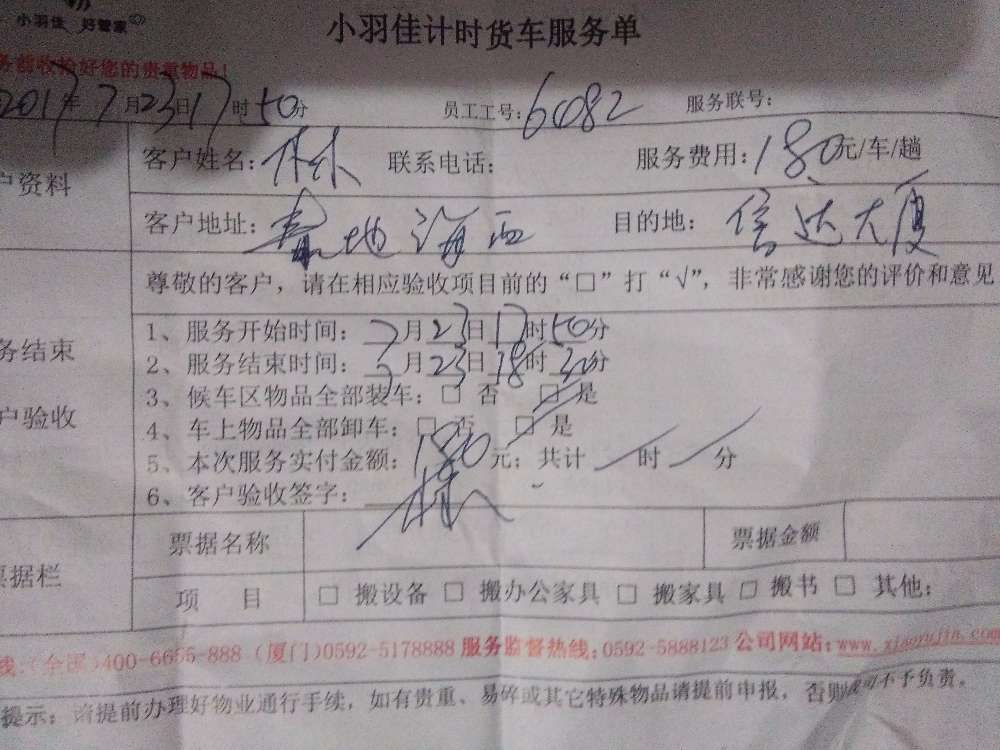 小羽佳 好管家
小羽佳计时货车服务单
务前收拾好您的贵重物品!
2017年7月23日17时50分 员工工号:6082 服务联号:
户资料
客户姓名:林 联系电话: 服务费用:180元/车/趟
客户地址: 地海西 目的地: 信达大厦
尊敬的客户，请在相应验收项目前的“□”打“√”，非常感谢您的评价和意见
务结束
户验收
1、服务开始时间:7月23日17时50分
2、服务结束时间:7月23日18时30分
3、候车区物品全部装车:□ 否 □ 是
4、车上物品全部卸车:□ 否 □ 是
5、本次服务实付金额:180元; 共计 时 分
6、客户验收签字:林
票据栏
票据名称 票据金额
项 目 □ 搬设备 □ 搬办公家具 □ 搬家具 □ 搬书 □ 其他:
线:(全国)400-6655-888 (厦门)0592-5178888 服务监督热线:0592-5888123 公司网站:www.xiaoyujia.com
提示: 请提前办理好物业通行手续，如有贵重、易碎或其它特殊物品请提前申报，否则 不予负责。